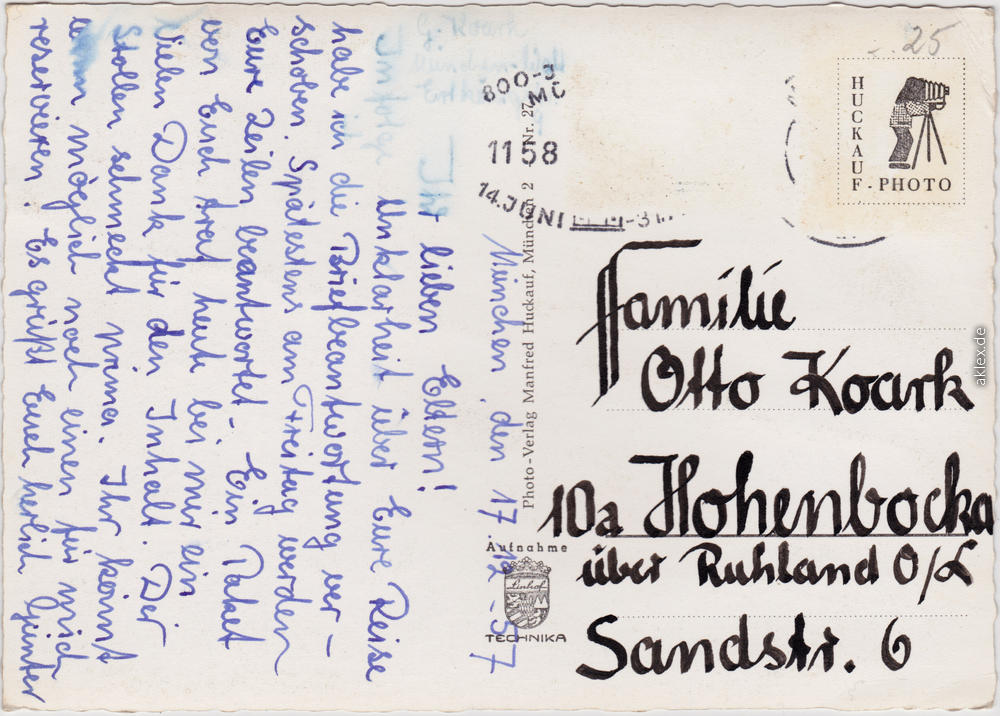 G. Koark
München
München, den 17.12.-57
Ihr lieben Eltern!
Infolge Unklarheit über Eure Reise
habe ich die Briefbeantwortung ver-
schoben. Spätestens am Freitag werden
Eure Zeilen beantwortet. Ein Paket
von Euch traf heut bei mir ein
Vielen Dank für den Inhalt. Der
Stollen schmeckt prima. Ihr könnt
wenn möglich noch einen für mich
reservieren! Es grüßt Euch herlich Günter
Photo-Verlag Manfred Huckauf, München 2 Nr. 27
Aufnahme
Linhof
TECHNIKA
1158
14. JUNI
25
HUCKAUF-PHOTO
Familie
Otto Koark
10a Hohenbocka
über Ruhland O/L
Sandstr. 6
aklex.de